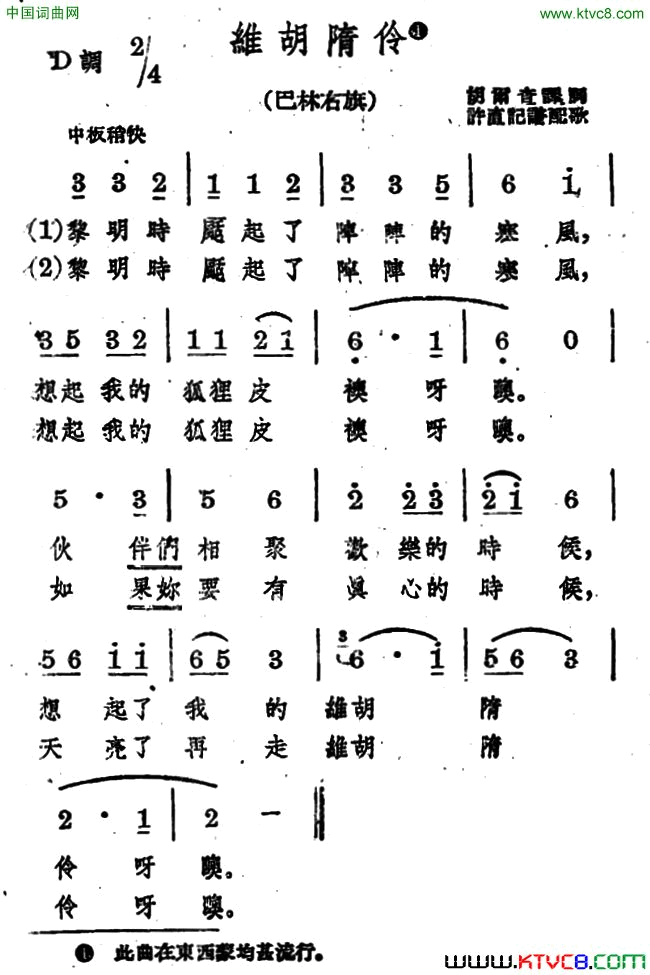 中国词曲网
www.ktvc8.com
維胡隋伶❶
D調 2/4
(巴林右旗)
胡爾查譯詞
許直記譜配歌
中板稍快
3 3 2 | 1 1 2 | 3 3 5 | 6 i |
(1)黎明時颳起了陣陣的塞風,
(2)黎明時颳起了陣陣的塞風,
35 32 | 11 21 | 6 · 1 | 6 0 |
想起我的狐狸皮襖呀噢。
想起我的狐狸皮襖呀噢。
5 · 3 | 5 6 | 2 23 | 2i 6 |
伙伴們相聚歡樂的時候,
如果妳要有眞心的時候,
56 ii | 65 3 | 3 6 · i | 56 3 |
想起了我的維胡隋
天亮了再走維胡隋
2 · 1 | 2 — ‖
伶呀噢。
伶呀噢。
❶ 此曲在東西蒙均甚流行。
www.KTVC8.com